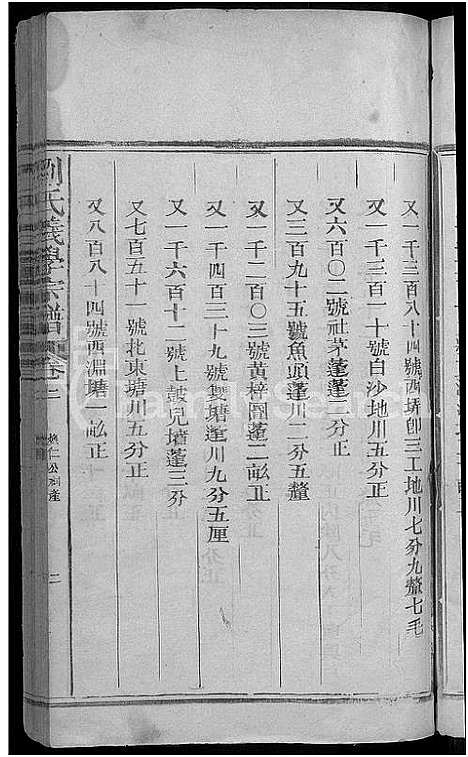 又一千三百八十四號西塝卽三工地川七分九釐七毛
又一千三百一十號白沙地川五分正
又六百〇二號社茅蓬蓬三分正
又三百九十五號魚頭蓬川二分五釐
又一千二百〇三號黄梓園蓬二畝正
又一千四百三十九號雙塘蓬川九分五厘
又一千六百十二號上鼓兒墻蓬三分
又七百五十一號北東塘川五分正
又八百八十四號西淵塘一畝正
劉氏義學宗譜
卷二
仁公祠產
二